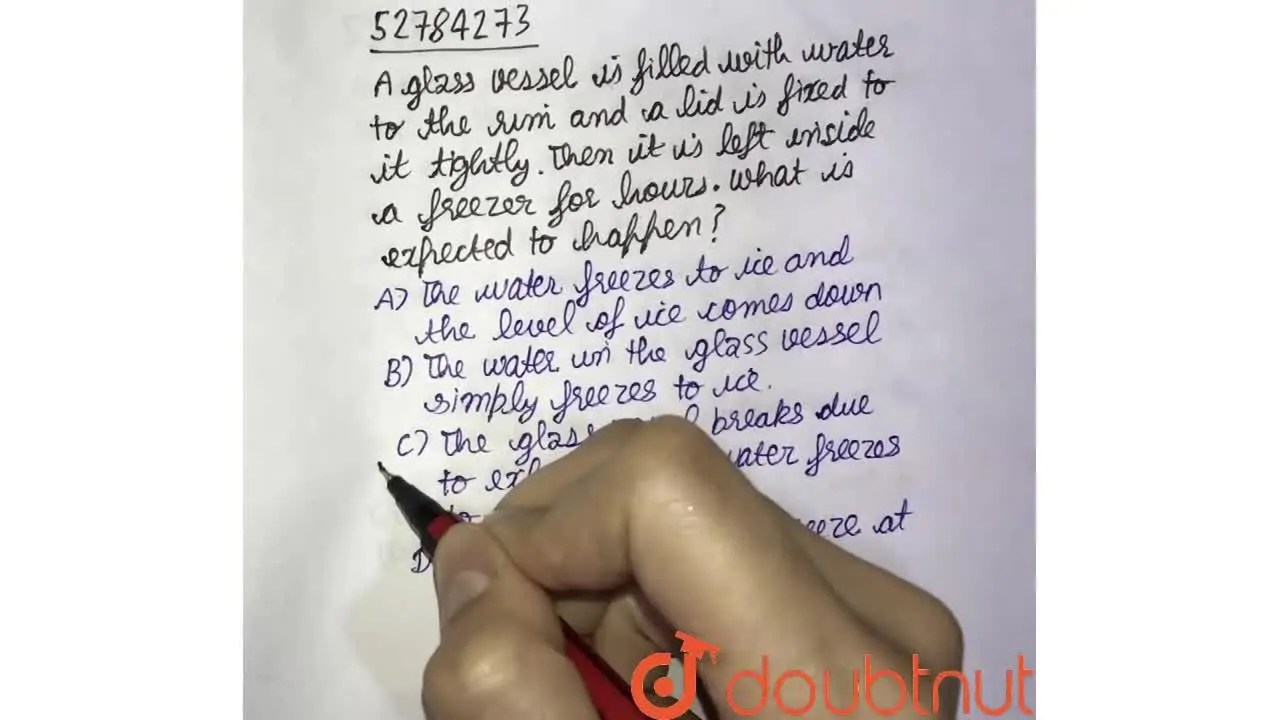 52784273
A glass vessel is filled with water
to the rim and a lid is fixed to
it tightly. Then it is left inside
a freezer for hours. What is
expected to happen?
A) The water freezes to ice and
the level of ice comes down
B) The water in the glass vessel
simply freezes to ice.
C) The glass breaks due
to water freezes
to at
D
doubtnut